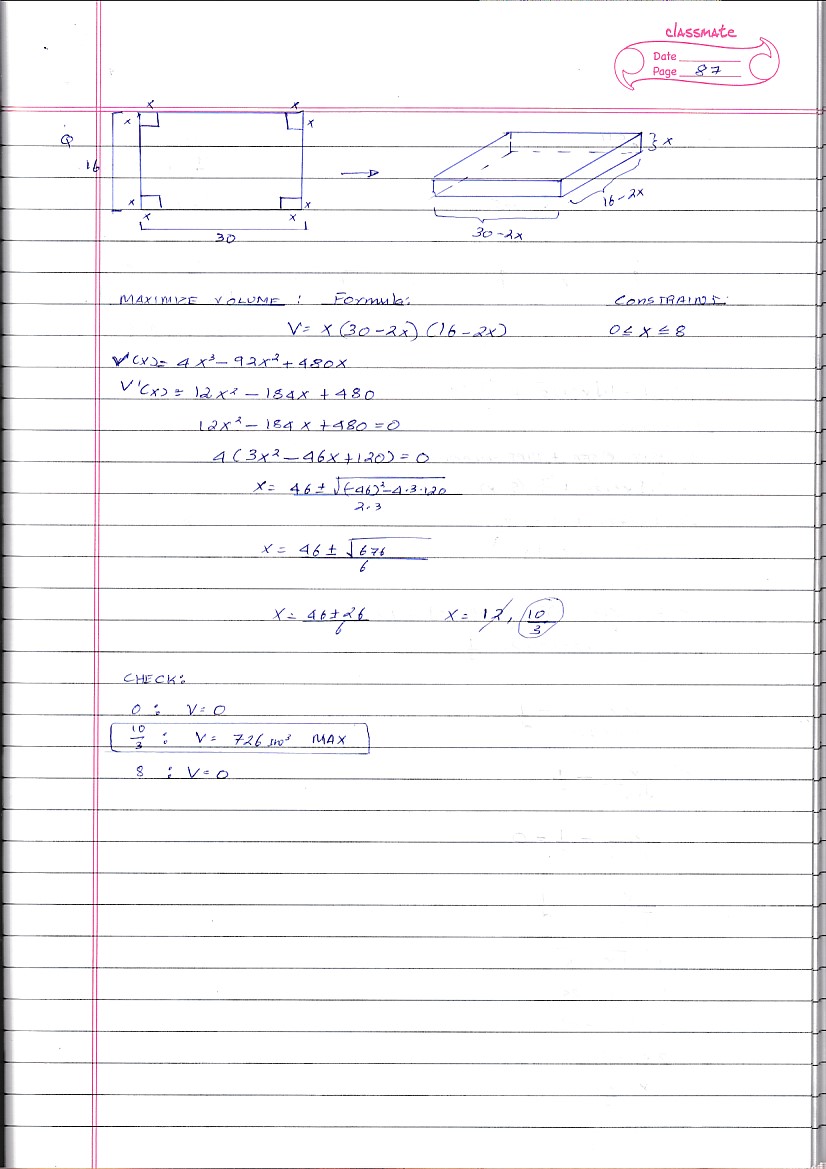 classmate
Date
Page 87
x x
x x
Q
16
x x
x x
30
x
16-2x
30-2x
MAXIMIZE VOLUME : Formula: CONSTRAINT:
V= x(30-2x)(16-2x) 0≤x≤8
V(x)= 4x³-92x²+480x
V'(x)= 12x²-184x+480
12x²-184x+480=0
4(3x²-46x+120)=0
x= 46±√(-46)²-4·3·120
2·3
x= 46±√676
6
x= 46±26 x= 12, 10
6 3
CHECK:
0 : V=0
10/3 : V= 726 MAX
8 : V=0